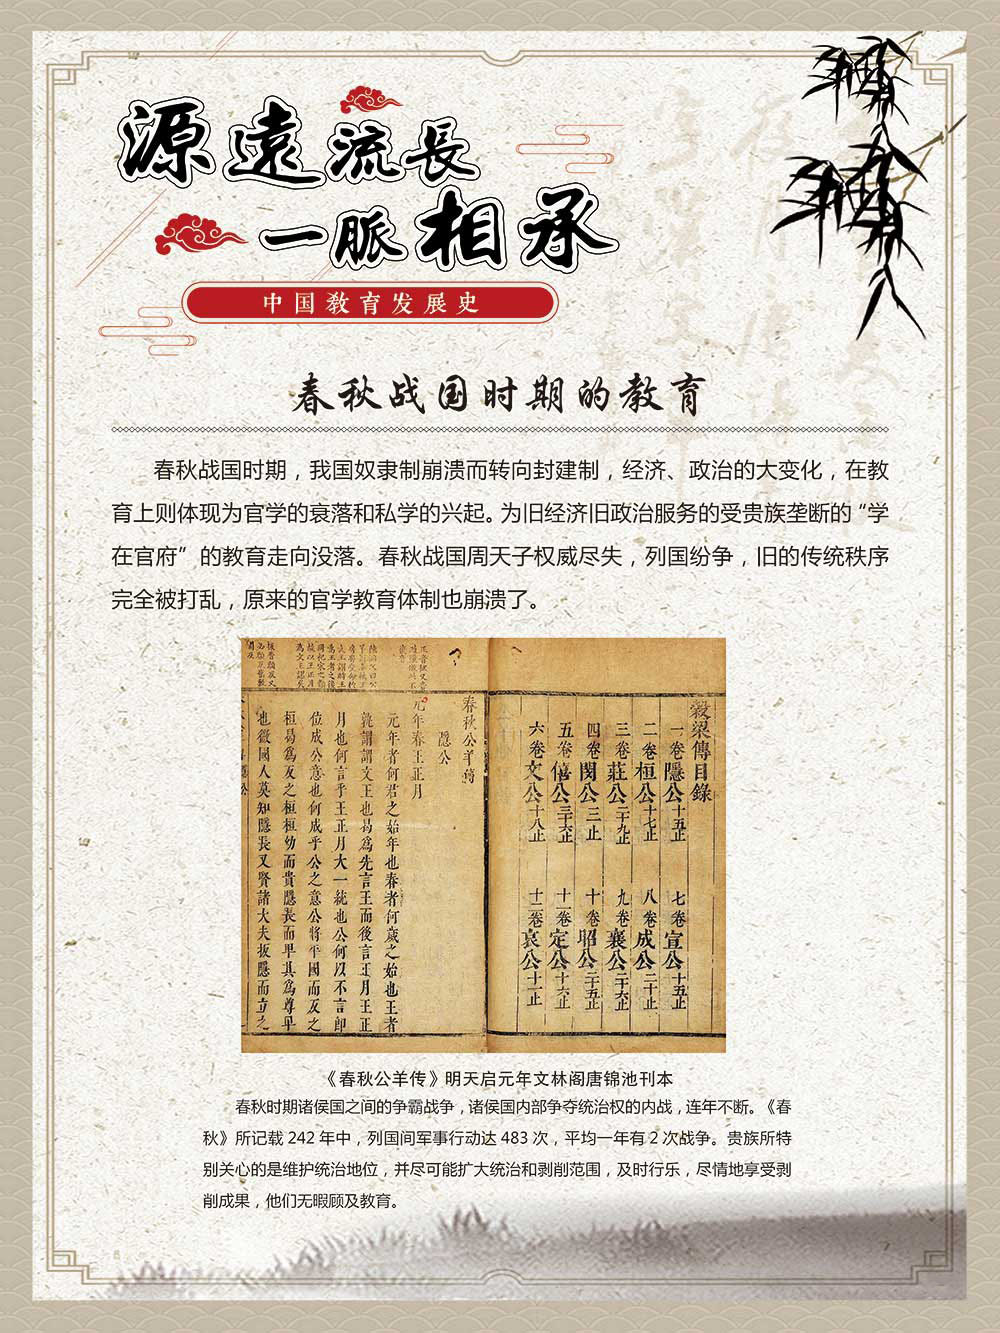 源遠流長
一脈相承
中国教育发展史
春秋战国时期的教育
春秋战国时期，我国奴隶制崩溃而转向封建制，经济、政治的大变化，在教
育上则体现为官学的衰落和私学的兴起。为旧经济旧政治服务的受贵族垄断的“学
在官府”的教育走向没落。春秋战国周天子权威尽失，列国纷争，旧的传统秩序
完全被打乱，原来的官学教育体制也崩溃了。
穀梁傳目錄
一卷隱公十五止 七卷宣公十五止
二卷桓公十七止 八卷成公二十止
三卷莊公二十九止 九卷襄公二十六止
四卷閔公三止 十卷昭公二十五止
五卷僖公三十六止 十一卷定公十六止
六卷文公十八止 十二卷哀公十一止
春秋公羊傳
隱公
元年春王正月
元年者何君之始年也春者何歲之始也王者
孰謂謂文王也曷為先言王而後言正月王正
月也何言乎王正月大一統也公何以不言即
位成公意也何成乎公之意公將平國而反之
桓曷為反之桓桓幼而貴隱長而卑其為尊卑
也微國人莫知隱長又賢諸大夫扳隱而立之
《春秋公羊传》明天启元年文林阁唐锦池刊本
春秋时期诸侯国之间的争霸战争，诸侯国内部争夺统治权的内战，连年不断。《春
秋》所记载 242 年中，列国间军事行动达 483 次，平均一年有 2 次战争。贵族所特
别关心的是维护统治地位，并尽可能扩大统治和剥削范围，及时行乐，尽情地享受剥
削成果，他们无暇顾及教育。